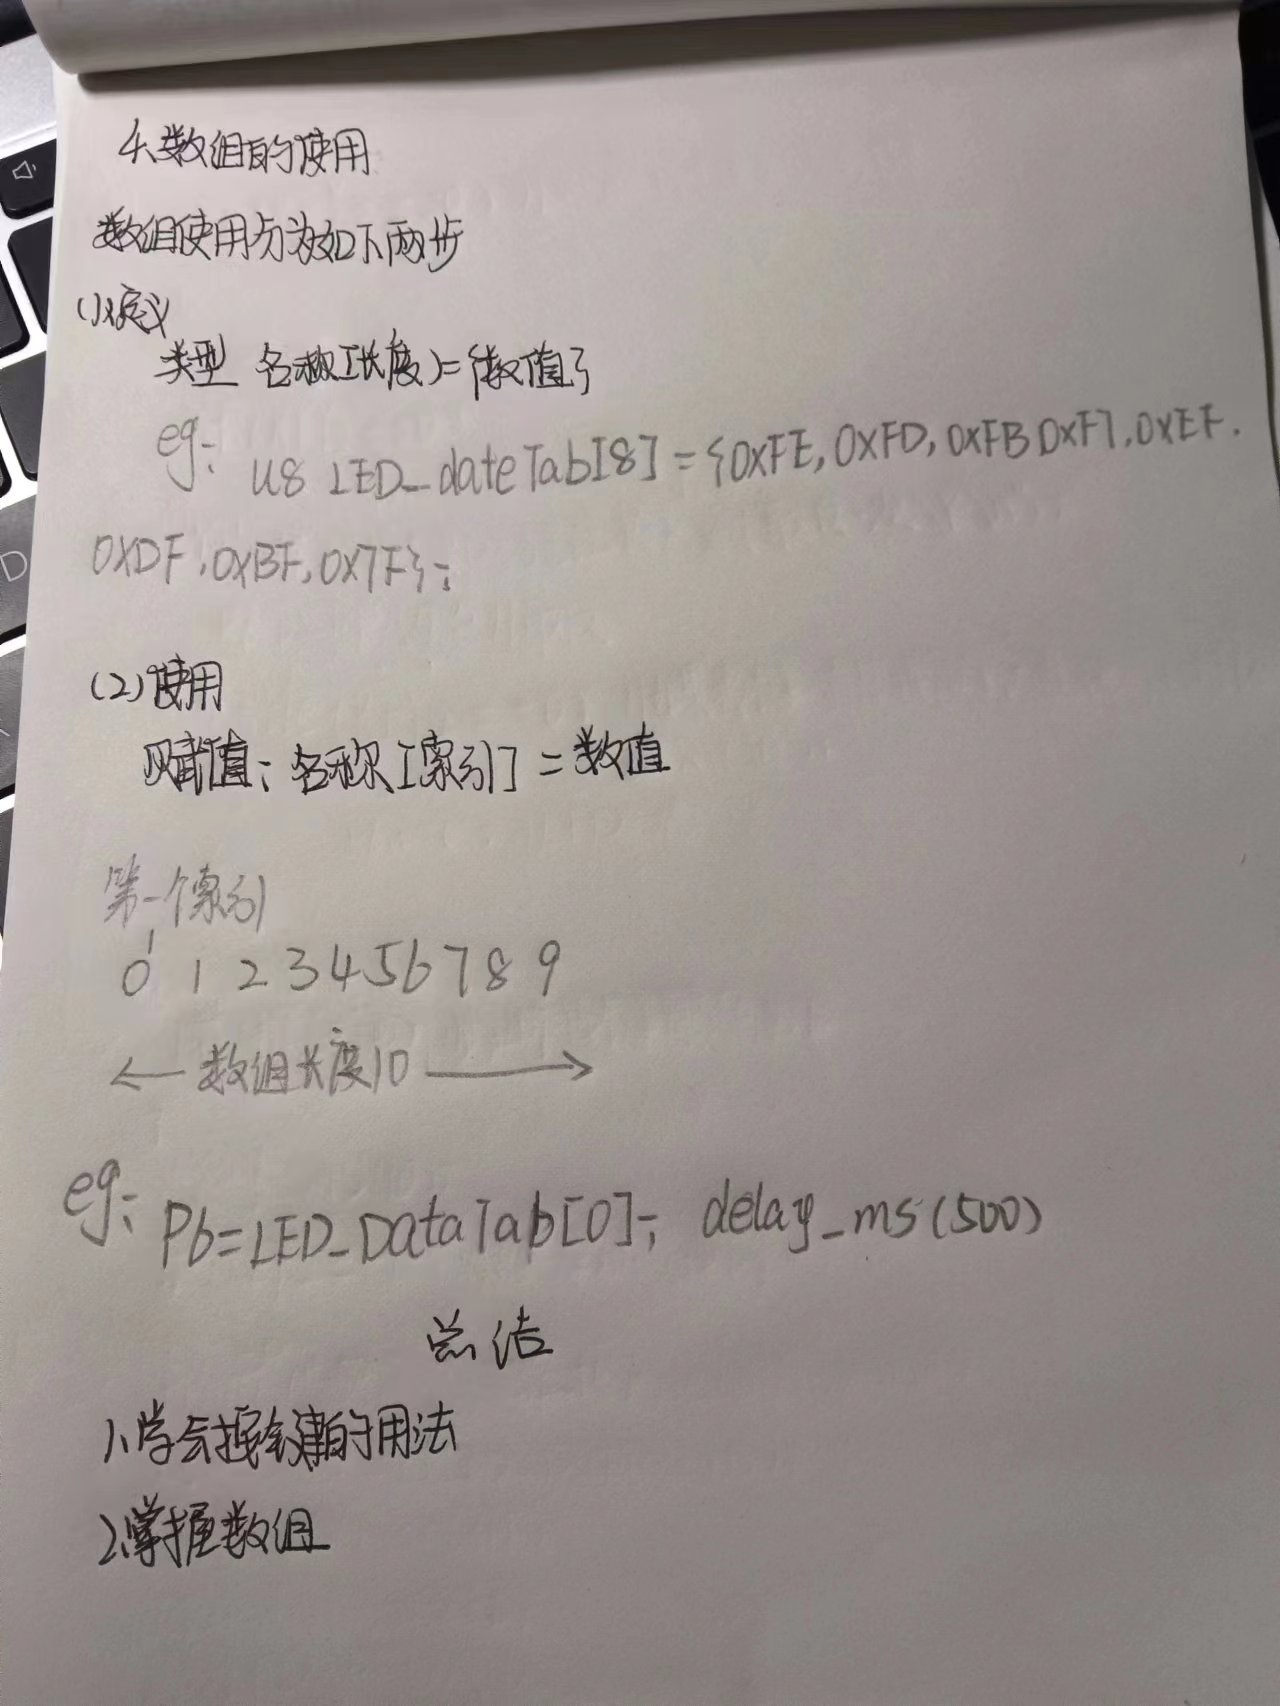 4、数组的使用
数组使用分为如下两步
(1)定义
类型 名称[长度]={数值}
eg: u8 LED_dateTab[8]={0xFE,0xFD,0xFB 0xF7,0xEF.
0xDF,0xBF,0x7F};
(2)使用
赋值: 名称[索引]=数值
第一个索引
0 1 2 3 4 5 6 7 8 9
数组长度10
eg: P6=LED_DataTab[0]; delay_ms(500)
总结
1、学会按键的用法
2、掌握数组